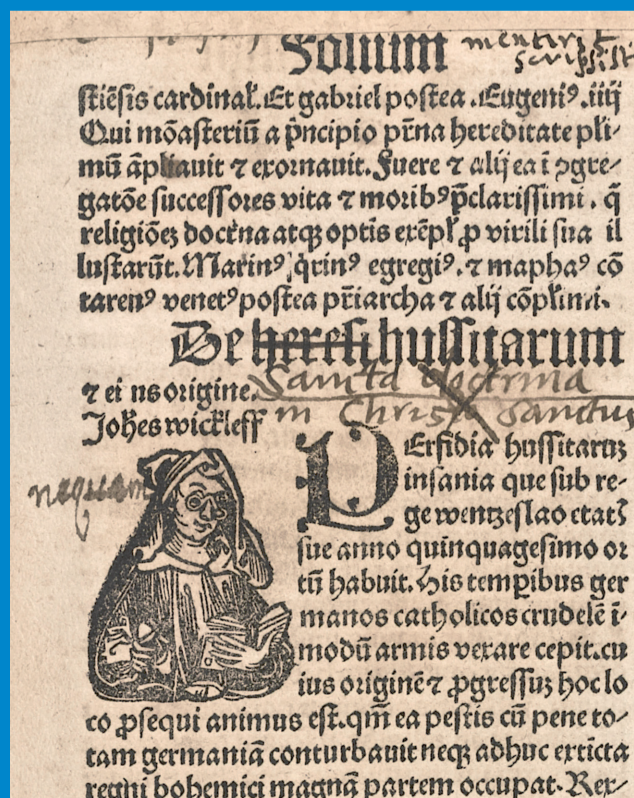 Folium
mentiris
scripsisti
stiēsis cardinał. Et gabriel postea .Eugeniꝰ .iiij
Qui mōasteriū a p̄ncipio pr̄na hereditate pli-
mū āpliauit ⁊ exornauit. Fuere ⁊ alij ea ī ꝯgre-
gatōe successores vita ⁊ moribꝰ p̄clarissimi . q̄
religiōeȝ doctrīa atqꝫ optīs exēpł ꝓ virili sua il
lustarūt. Marinꝰ q̇rinꝰ egregiꝰ. ⁊ mapheꝰ cō
tarenꝰ venetꝰ postea pr̄iarcha ⁊ alij cōpłimi.
De heresi hussitarum
⁊ ei us origine.
Sancta doctrina
in Christo Sanctus
Joħes wickleff
PErfidia hussitaruȝ
insania que sub re-
nequam
ge wentzeslao etatꝭ
sue anno quinquagesimo or
tū habuit. His tempībus ger
manos catholicos crudelē ī-
modū armis vexare cepit. cu
ius originē ⁊ ꝓgressuȝ hoc lo
co ꝓsequi animus est. qm̄ ea pestis cū pene to-
tam germaniā conturbauit neqꝫ adhuc exticta
regni bohemici magnā partem occupat. Rex-